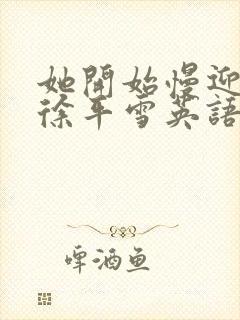 她開始慢迎
徐平雪英語
啤酒鱼